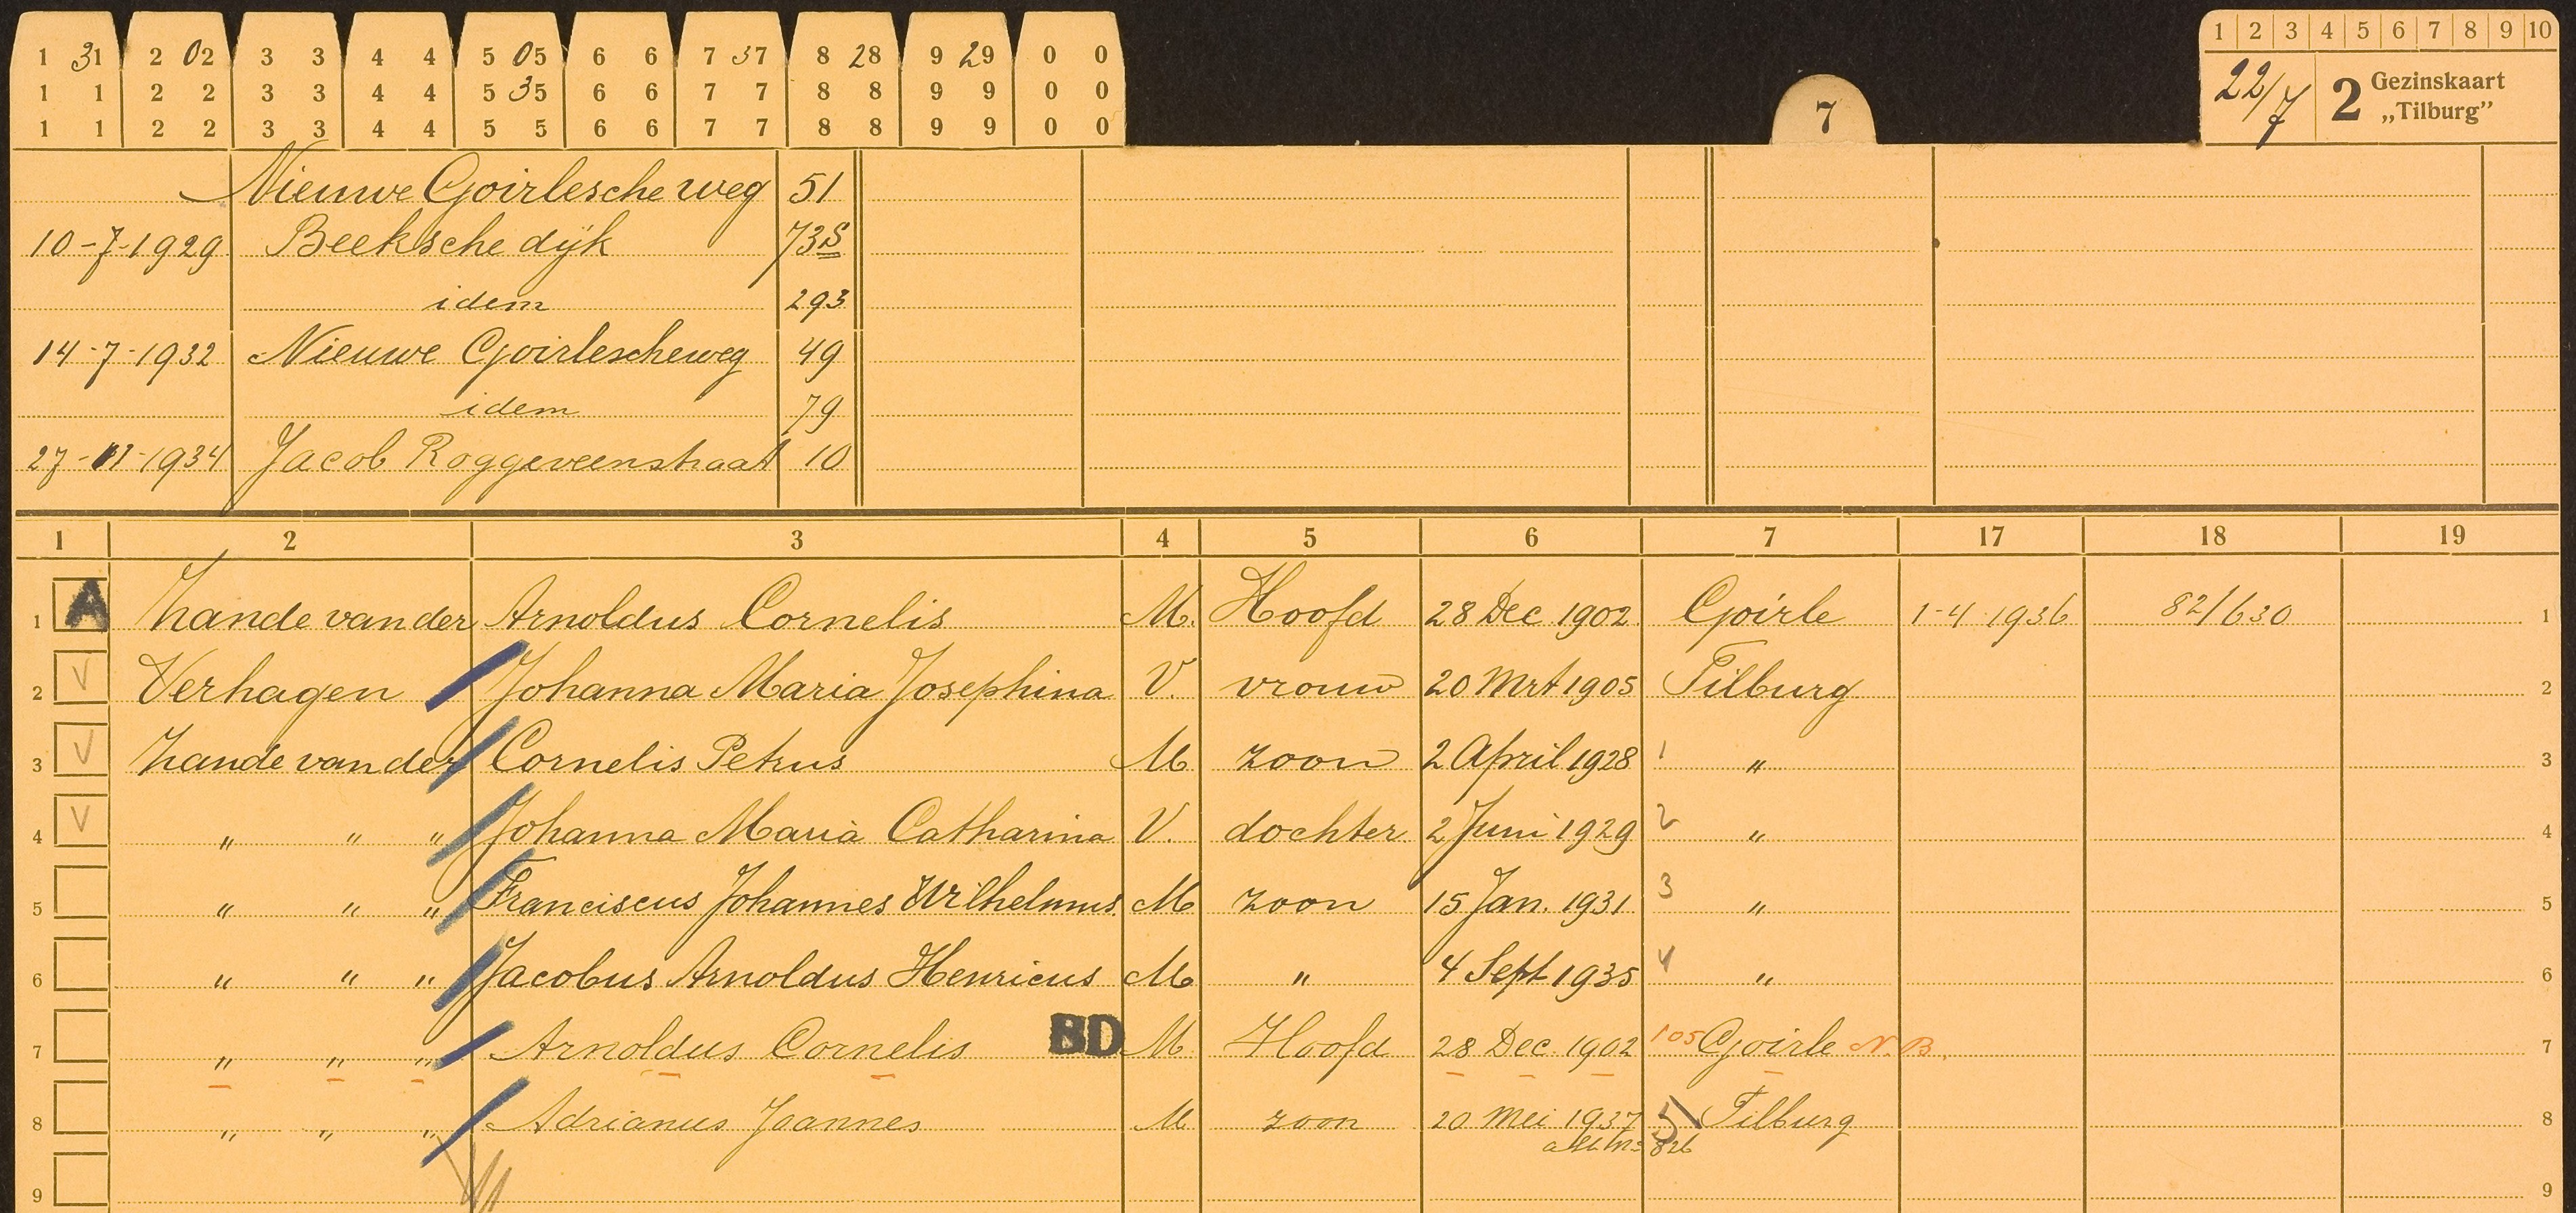 1 31 2 02 3 3 4 4 5 05 6 6 7 37 8 28 9 29 0 0
1 1 2 2 3 3 4 4 5 35 6 6 7 7 8 8 9 9 0 0
1 1 2 2 3 3 4 4 5 5 6 6 7 7 8 8 9 9 0 0
7
1 2 3 4 5 6 7 8 9 10
22/7 2 Gezinskaart
„Tilburg”
Nieuwe Goirlesche weg 51
10-7-1929 Beeksche dijk 73S
idem 293
14-7-1932 Nieuwe Goirlescheweg 49
idem 79
27-11-1934 Jacob Roggeveenstraat 10
1 2 3 4 5 6 7 17 18 19
1 A Zande van der Arnoldus Cornelis M. Hoofd 28 Dec 1902 Goirle 1-4 1936 82/630 1
2 V Verhagen Johanna Maria Josephina V. vrouw 20 Mrt 1905 Tilburg 2
3 V Zande van der Cornelis Petrus M zoon 2 April 1928 1 „ 3
4 V „ „ „ Johanna Maria Catharina V. dochter 2 Juni 1929 2 „ 4
5 „ „ „ Franciscus Johannes Wilhelmus M zoon 15 Jan. 1931 3 „ 5
6 „ „ „ Jacobus Arnoldus Henricus M „ 4 Sept 1935 4 „ 6
7 „ „ „ Arnoldus Cornelis BD M Hoofd 28 Dec. 1902 105 Goirle N.B. 7
8 „ „ „ Adrianus Joannes M zoon 20 Mei 1937 5 Tilburg 8
826
9 9